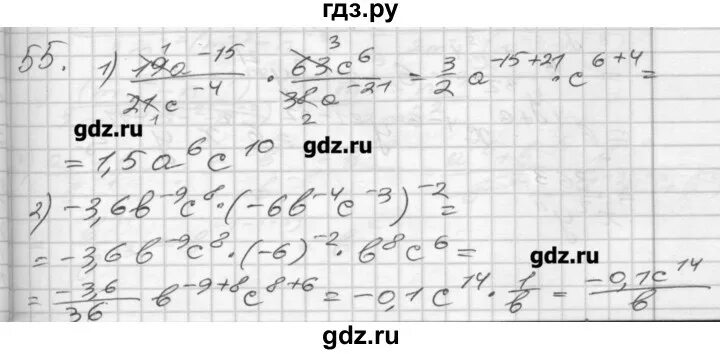 гдз.ру
55. 1) 19a^{-15}/21c^{-4} · 63c^{6}/38a^{-21} = 3/2 a^{-15+21} · c^{6+4} =
gdz.ru gdz.ru
= 1,5a^{6}c^{10}
2) -3,6b^{-9}c^{8} · (-6b^{-4}c^{-3})^{-2} =
= -3,6b^{-9}c^{8} · (-6)^{-2} · b^{8}c^{6} =
gdz.ru gdz.ru
= -3,6/36 b^{-9+8}c^{8+6} = -0,1c^{14} · 1/b = -0,1c^{14}/b
gdz.ru